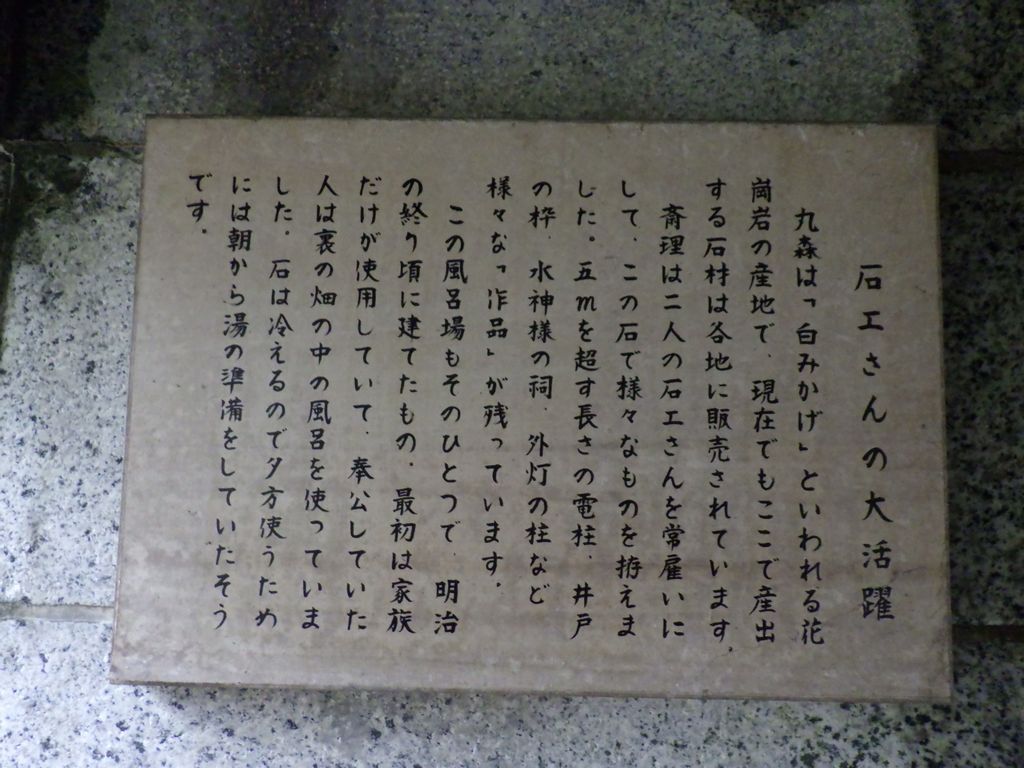 石工さんの大活躍
九森は「白みかげ」といわれる花
崗岩の産地で、現在でもここで産出
する石材は各地に販売されています。
斎理は二人の石工さんを常雇いに
して、この石で様々なものを拵えま
した。五mを超す長さの電柱、井戸
の枠、水神様の祠、外灯の柱など
様々な「作品」が残っています。
この風呂場もそのひとつで、明治
の終り頃に建てたもの。最初は家族
だけが使用していて、奉公していた
人は裏の畑の中の風呂を使っていま
した。石は冷えるので夕方使うため
には朝から湯の準備をしていたそう
です。